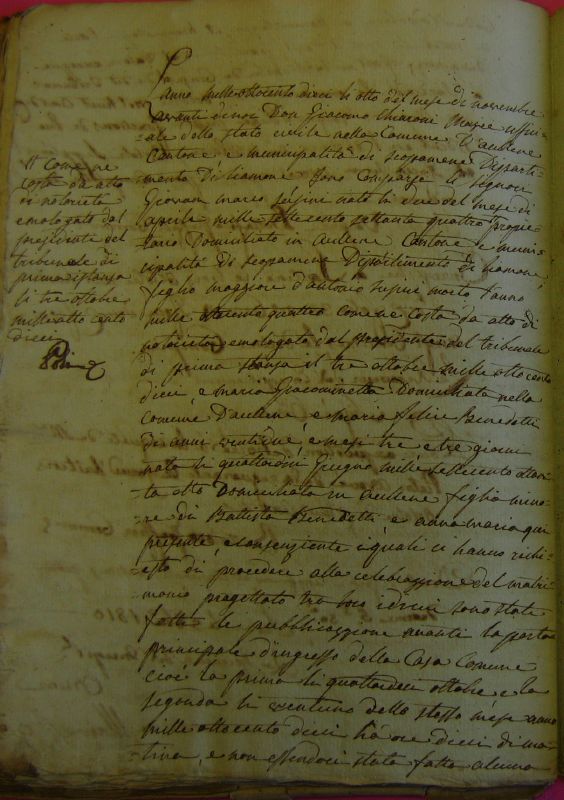 L'anno mille ottocento dieci li otto del mese di novembre
avanti di noi Don Giacomo Chiaroni Maere uffici-
ale dello stato civile nella Comune d'aullene
Cantone e municipalità di scopamene Diparti-
mento di liamone sono comparsi li signori
Giovan marco susini nato li dieci del mese di
aprile mille settecento settanta quattro proprie-
tario Domiciliato in aullene Cantone e muni-
cipalità di scopamene Dipartimento di liamone
figlio maggiore d'antonio susini morto l'anno
mille ottocento quattro come ne costa da atto di
notorietà emologato dal presidente del tribunale
di prima istanza il tre ottobre mille otto cento
dieci, e maria Giacominetta Domiciliata nella
Comune d'aullene, e maria felice Benedetti
di anni ventidue, e mesi tre e tre giorni
nata li quattordici Giugno mille settecento ottan-
ta otto Domiciliata in aullene figlia mino-
re di Battista Benedetti e anna maria qui
presente, e consenziente i quali ci hanno richi-
esto di procedere alla celebrazzione del matri-
monio progettato tra loro e di cui sono state
fatte le pubblicazzione avanti la porta
principale d'ingresso della Casa Comune
cioè la prima li quattordici ottobre e la
seconda li ventuno dello stesso mese anno
mille ottocento dieci ha ore dieci di ma-
tina, e non essendoci stata fatta alcuna
# come ne
costa da atto
di notorietà
emologato dal
presidente del
tribunale di
prima istanza
li tre ottobre
mille otto cento
dieci